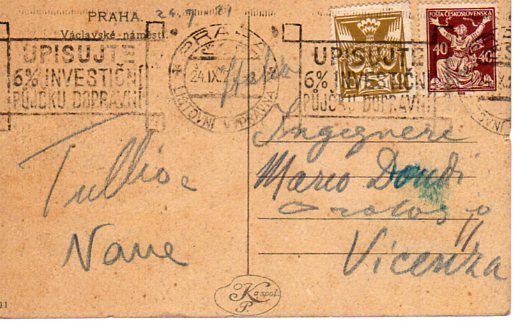 PRAHA.
Václavské náměstí.
UPISUJTE
6% INVESTIČNÍ
PŮJČKU DOPRAVNÍ
PRAHA
24.IX.
UPISUJTE
6% INVESTIČNÍ
PŮJČKU DOPRAVNÍ
POŠTA ČESKOSLOVENSKÁ
40 40
Italia
Ingegnere
Mario Dondi
Orologio
Vicenza
Tullio e
Nane
K
P.